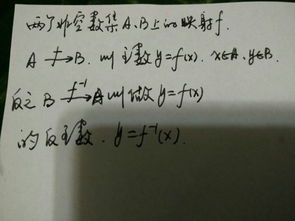 两个非空数集A、B上的映射f.
A →f B. 则 主数 y=f(x). x∈A. y∈B.
反之 B →f⁻¹ A 则 做 y=f(x)
的反主数. y=f⁻¹(x).